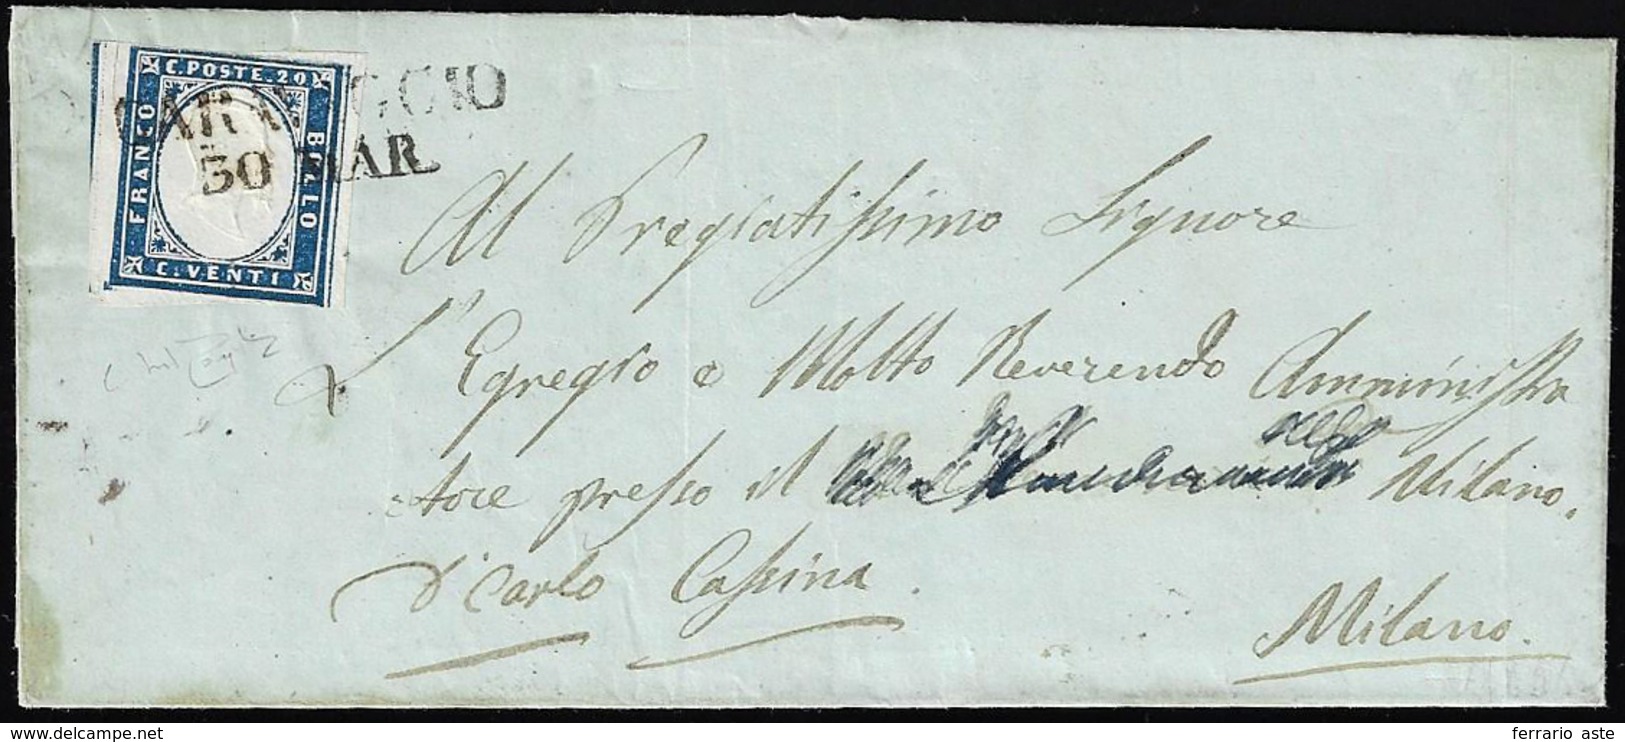 C. POSTE. 20
FRANCO
BOLLO
C. VENTI
CARAVAGGIO
30 MAR.
Al Pregiatissimo Signore
L'Egregio e Molto Reverendo Amministra
tore presso il Milano.
D. Carlo Cassina.
Milano.
delcampe.net
ferrario aste